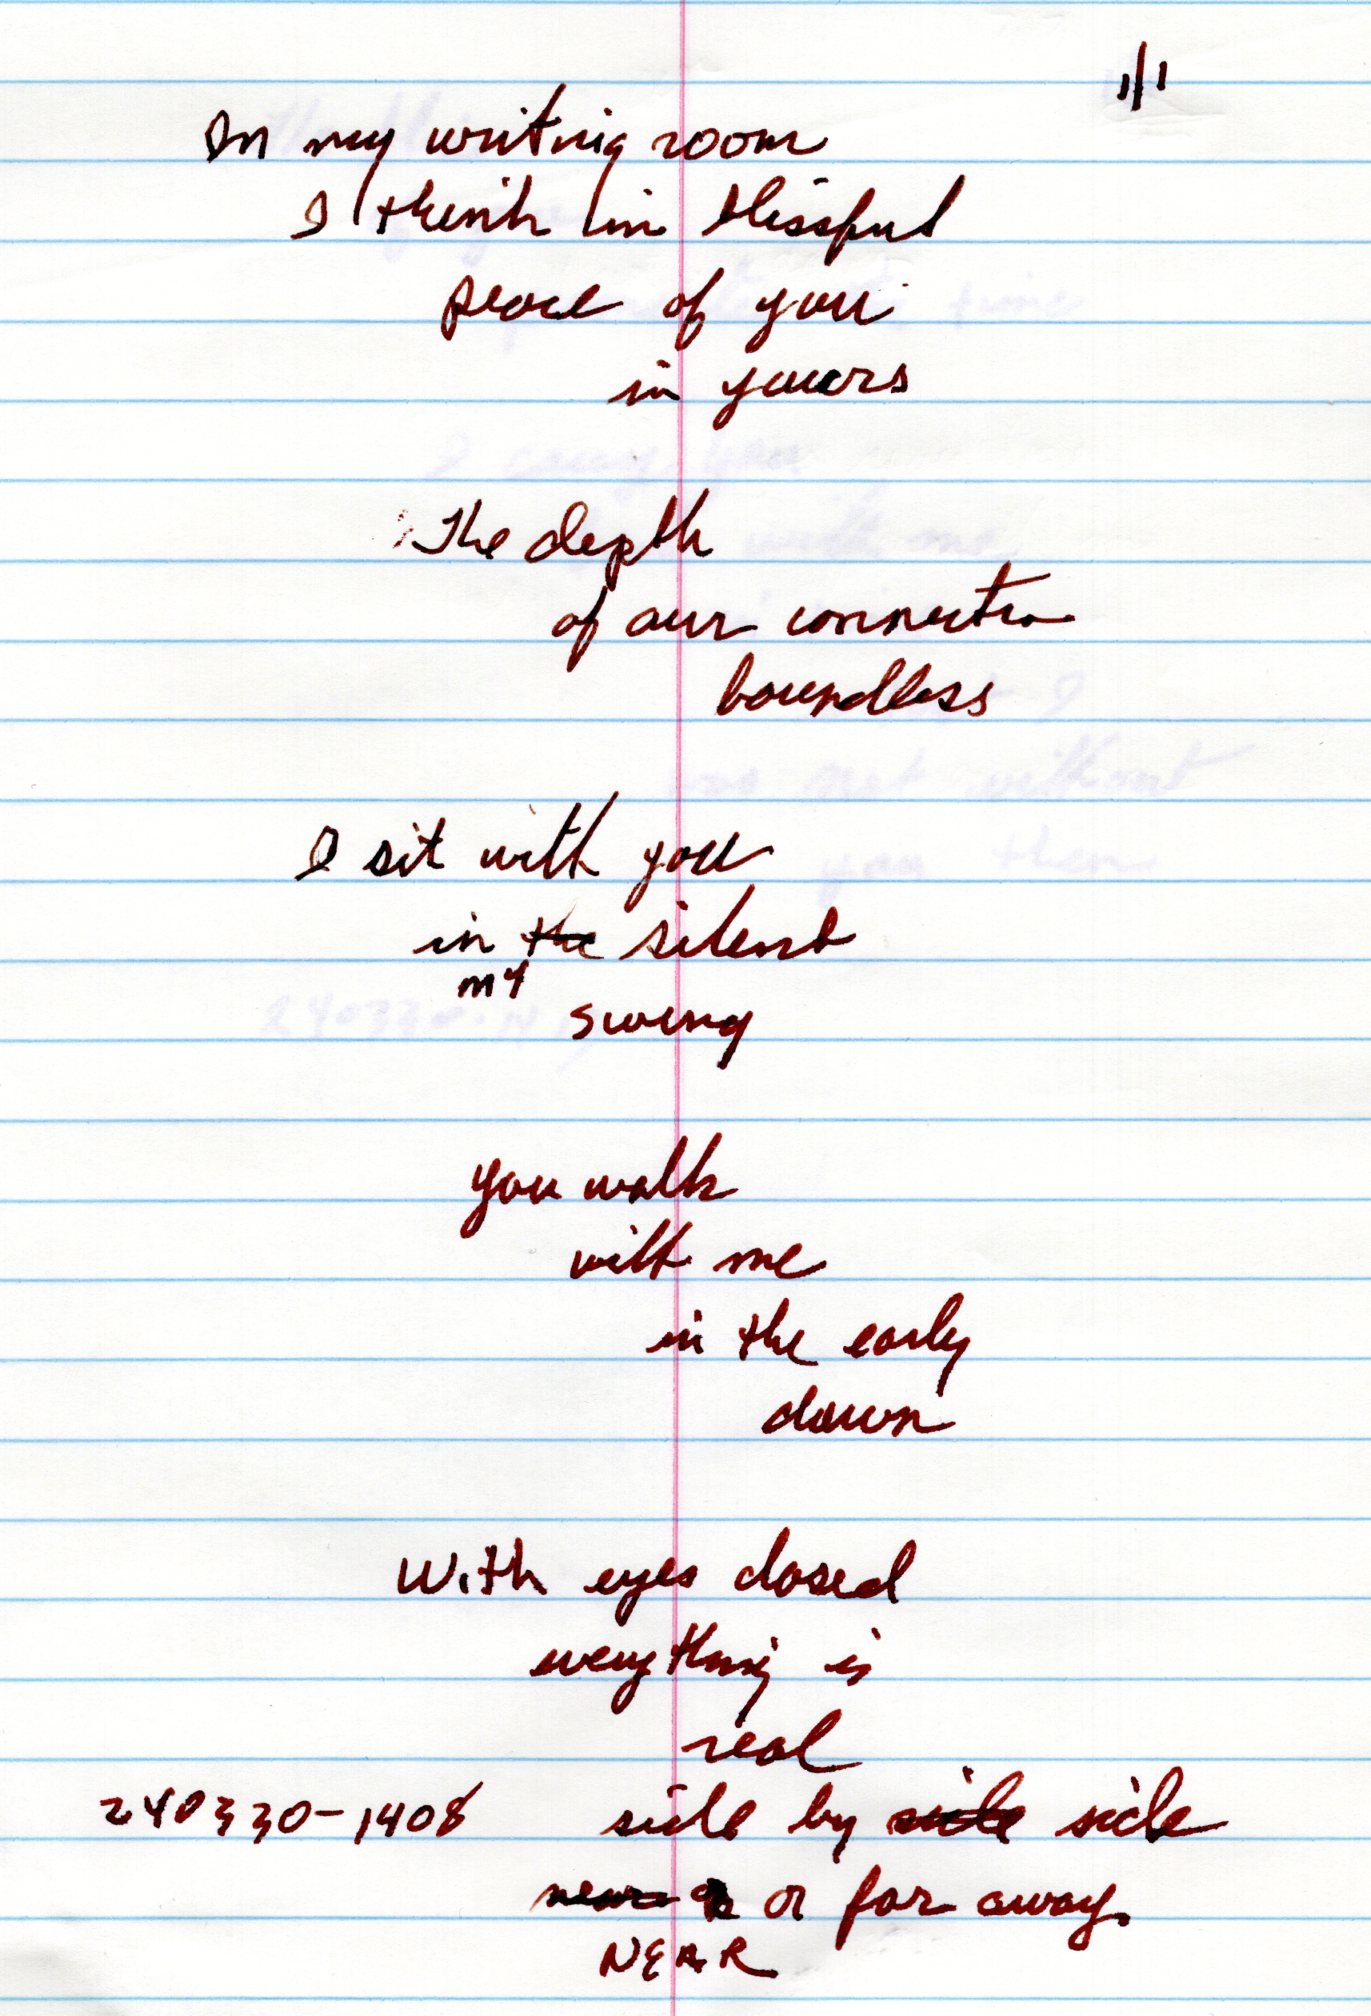 1/1
In my writing room
I think in blissful
peace of you
in yours
The depth
of our connection
boundless
I sit with you
in the silent
my
swing
you walk
with me
in the early
dawn
With eyes closed
everything is
real
240330-1408 side by side side
near or far away.
NEAR